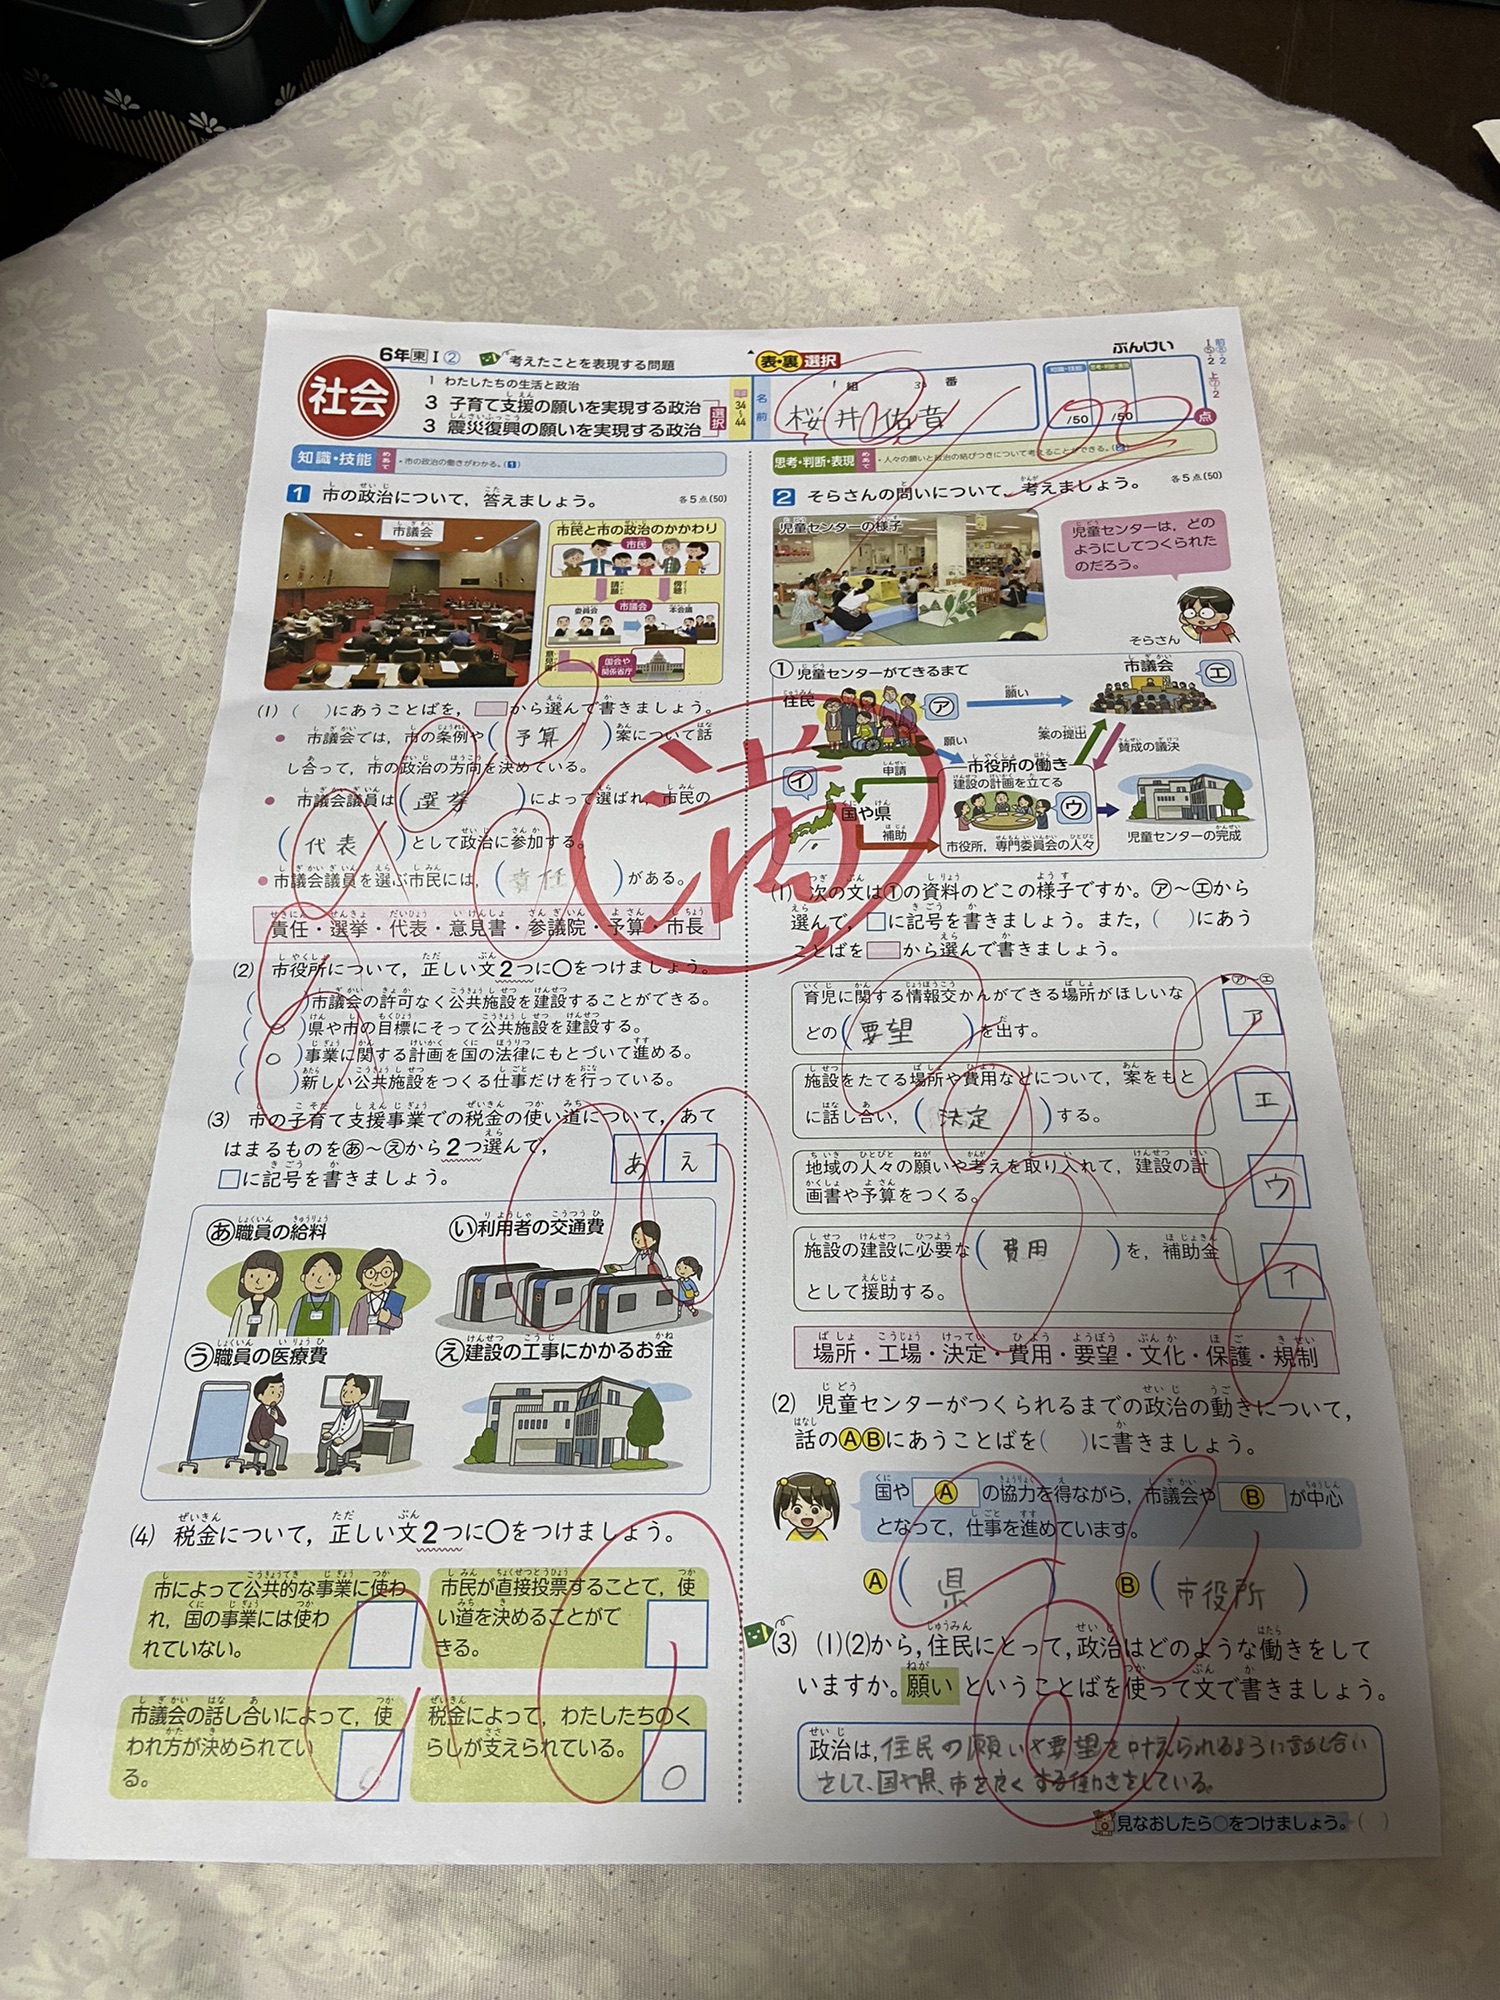 6年 東 Ⅰ ②
考えたことを表現する問題
表・裏 選択
ぶんけい
社会
1 わたしたちの生活と政治
3 子育て支援の願いを実現する政治
3 震災復興の願いを実現する政治
選択
34〜44
名前
1組 番
桜井佑音
知識・技能
/50
/50
100
点
知識・技能 めあて ・市の政治の働きがわかる。(1)
1 市の政治について，答えましょう。 各5点(50)
市議会
市民と市の政治のかかわり
市民
請願
傍聴
委員会
市議会
本会議
意見書
国会や関係省庁
(1) ( )にあうことばを，から選んで書きましょう。
● 市議会では，市の条例や( 予算 )案について話
し合って，市の政治の方向を決めている。
● 市議会議員は( 選挙 )によって選ばれ，市民の
( 代表 )として政治に参加する。
● 市議会議員を選ぶ市民には，( 責任 )がある。
責任・選挙・代表・意見書・参議院・予算・市長
(2) 市役所について，正しい文2つに○をつけましょう。
( )市議会の許可なく公共施設を建設することができる。
( ○ )県や市の目標にそって公共施設を建設する。
( ○ )事業に関する計画を国の法律にもとづいて進める。
( )新しい公共施設をつくる仕事だけを行っている。
(3) 市の子育て支援事業での税金の使い道について，あて
はまるものをあ〜えから2つ選んで，
□に記号を書きましょう。
あ え
あ 職員の給料
い 利用者の交通費
う 職員の医療費
え 建設の工事にかかるお金
(4) 税金について，正しい文2つに○をつけましょう。
市によって公共的な事業に使わ
れ，国の事業には使わ
れていない。
市民が直接投票することで，使
い道を決めることがで
きる。
市議会の話し合いによって，使
われ方が決められてい
る。
○
税金によって，わたしたちのく
らしが支えられている。
○
満
思考・判断・表現 めあて ・人々の願いと政治の結びつきについて考えることができる。(2)
2 そらさんの問いについて，考えましょう。 各5点(50)
児童センターの様子
児童センターは，どの
ようにしてつくられた
のだろう。
そらさん
① 児童センターができるまて
住民
ア
願い
市議会
エ
願い
案の提出
賛成の議決
市役所の働き
建設の計画を立てる
ウ
市役所，専門委員会の人々
イ
申請
国や県
補助
児童センターの完成
(1) 次の文は①の資料のどこの様子ですか。ア〜エから
選んで，□に記号を書きましょう。また，( )にあう
ことばをから選んで書きましょう。
▶ア〜エ
育児に関する情報交かんができる場所がほしいな
どの( 要望 )を出す。
ア
施設をたてる場所や費用などについて，案をもと
に話し合い，( 決定 )する。
エ
地域の人々の願いや考えを取り入れて，建設の計
画書や予算をつくる。
ウ
施設の建設に必要な( 費用 )を，補助金
として援助する。
イ
場所・工場・決定・費用・要望・文化・保護・規制
(2) 児童センターがつくられるまでの政治の動きについて，
話のABにあうことばを( )に書きましょう。
国や A の協力を得ながら，市議会や B が中心
となって，仕事を進めています。
A ( 県 ) B ( 市役所 )
(3) (1)(2)から，住民にとって，政治はどのような働きをして
いますか。願い ということばを使って文で書きましょう。
政治は，住民の願いや要望を叶えられるように話し合い
をして、国や県、市を良くする働きをしている。
見なおしたら○をつけましょう。( )